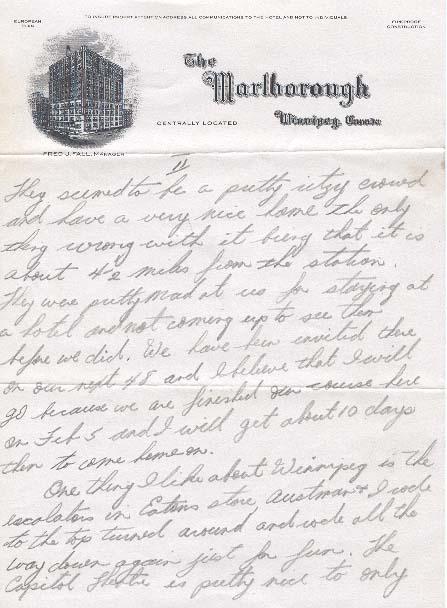 TO INSURE PROMPT ATTENTION ADDRESS ALL COMMUNICATIONS TO THE HOTEL AND NOT TO INDIVIDUALS
EUROPEAN
PLAN
FIREPROOF
CONSTRUCTION
The
Marlborough
CENTRALLY LOCATED
Winnipeg, Canada
FRED J. FALL, MANAGER
II
They seemed to be a pretty itzy crowd
and have a very nice home the only
thing wrong with it being that it is
about 4½ miles from the station.
They were pretty mad at us for staying at
a hotel and not coming up to see them
before we did. We have been invited there
on our next 48 and I believe that I will
go because we are finished our course here
on Feb 5 and I will get about 10 days
then to come home on.
One thing I like about Winnipeg is the
escalators in Eatons store, Austman & I rode
to the top turned around and rode all the
way down again just for fun. The
Capitol Theatre is pretty nice to only